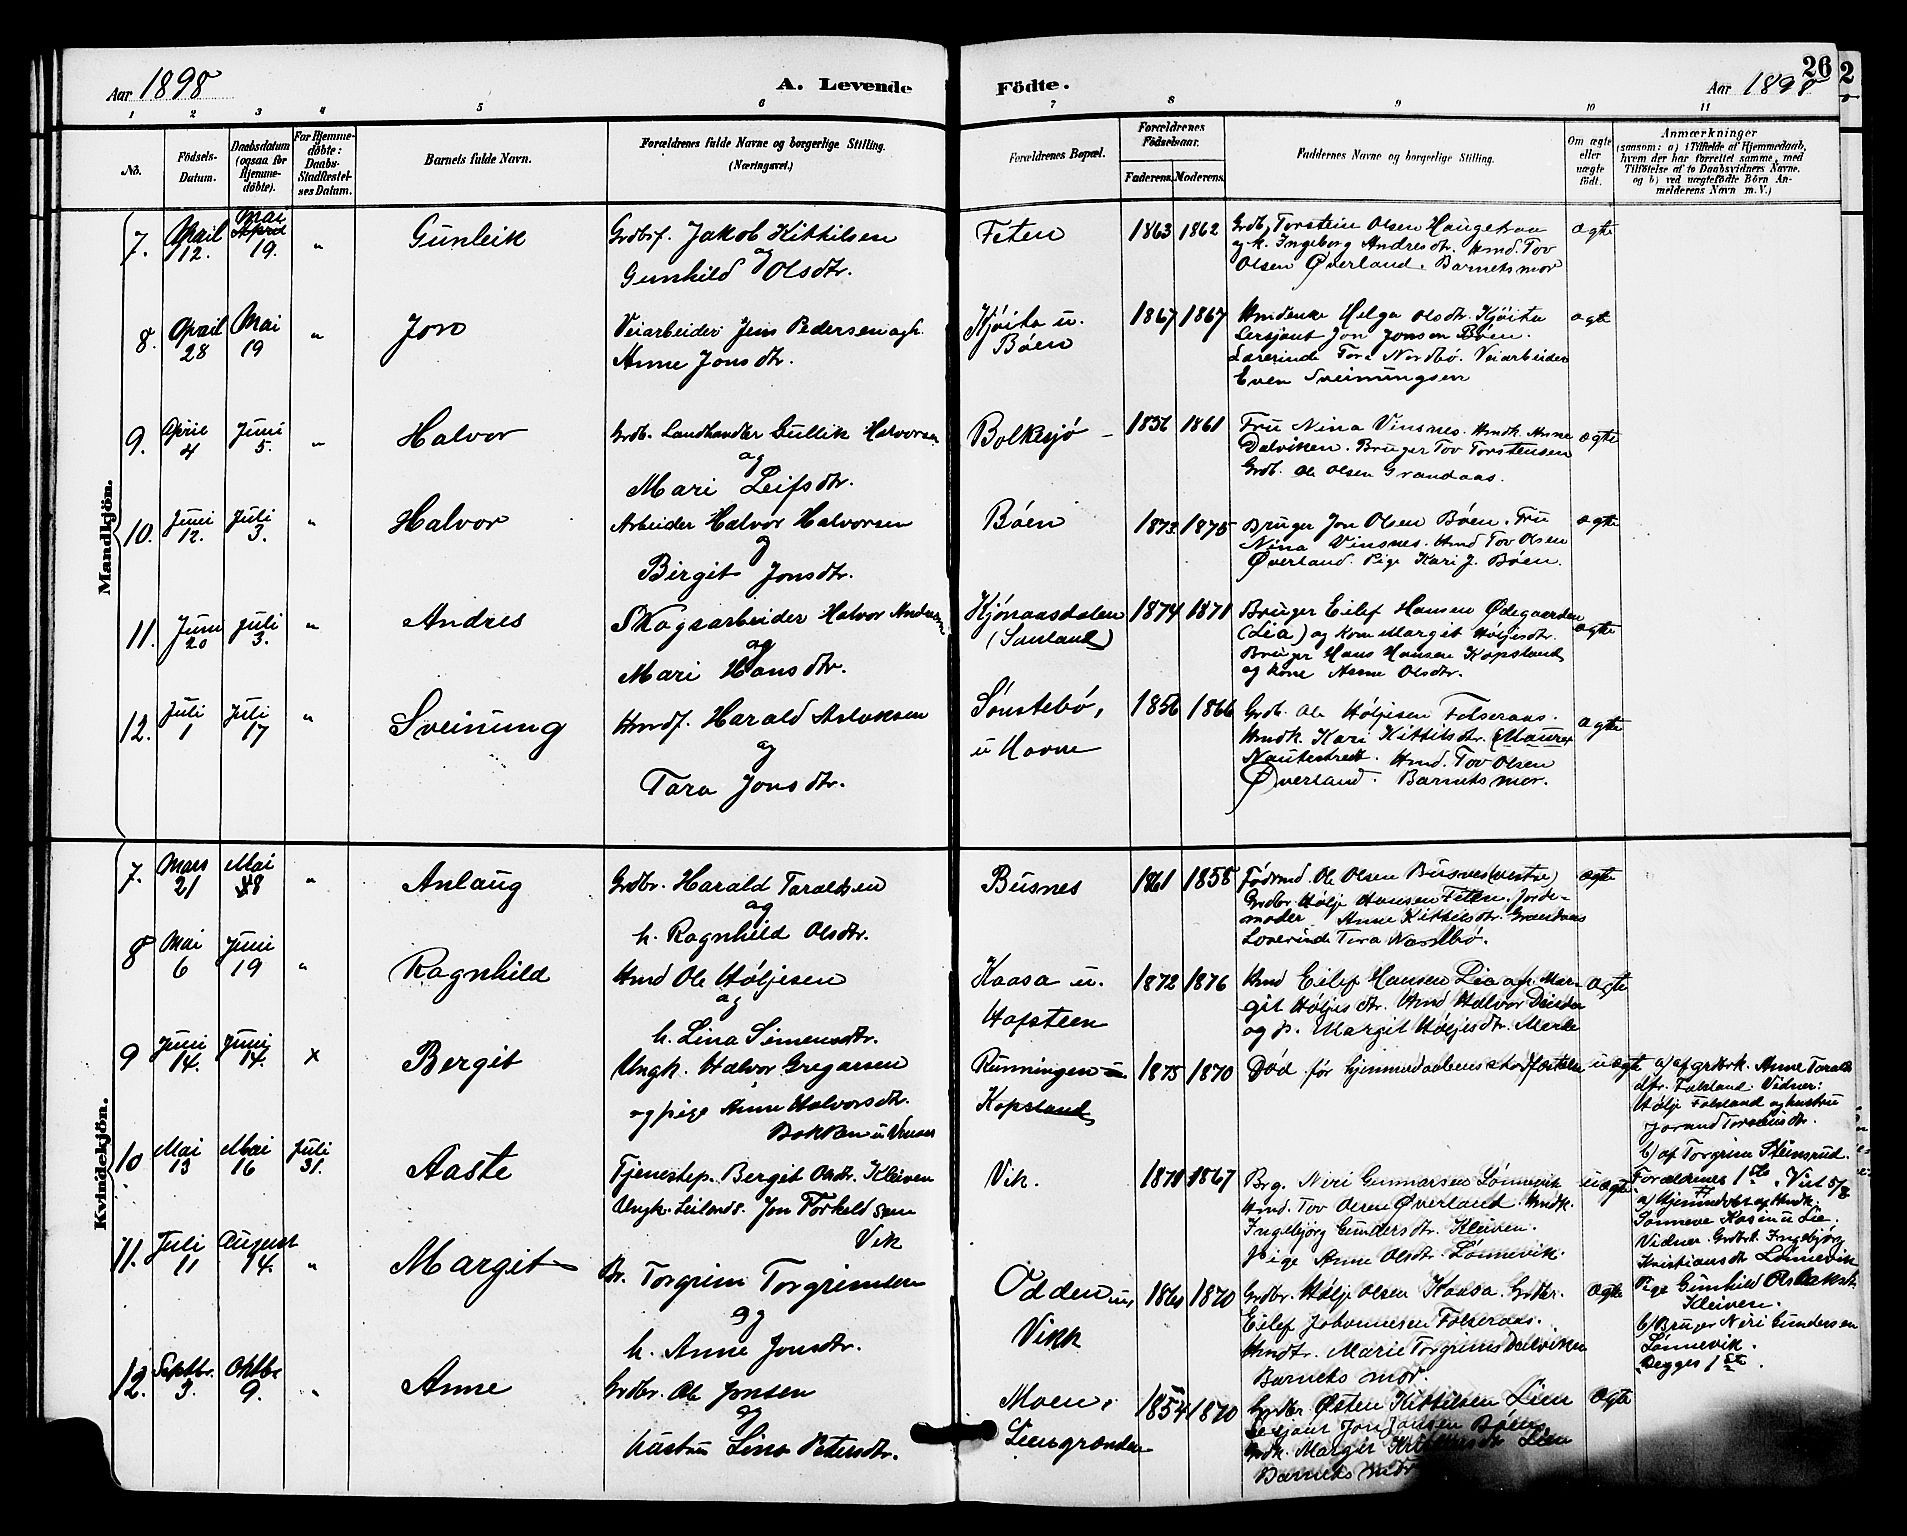 Aar 1898
A. Levende
Födte.
Aar 1898
26
2
1 2 3 4 5 6 7 8 9 10 11
No.
Födsels-
Datum.
Daabsdatum
(ogsaa for
Hjemme-
døbte).
For Hjemme-
døbte:
Daabs-
Stadfæstel-
ses Datum.
Barnets fulde Navn.
Forældrenes fulde Navne og borgerlige Stilling.
(Næringsvei.)
Forældrenes Bopæl.
Forældrenes
Födselsaar.
Faderens. Moderens.
Faddernes Navne og borgerlige Stilling.
Om ægte
eller
uægte
født.
Anmærkninger
(saasom: a) i Tilfælde af Hjemmedaab,
hvem der har forrettet samme, med
Tilføielse af to Daabsvidners Navne.
og b) ved uægtefødte Børn An-
melderens Navn m.V.)
Mandkjön.
7. April 12. Mai April 19. " Gunleik
Grdbsf. Jakob Kittilsen
og
Gunhild Olsdtr.
Fsten 1863 1862
Grdb. Torstein Olsen Haugetraa
og k. Ingeborg Andresdtr. Hmd. Tov
Olsen Øverland. Barnets mor
ægte
8. April 28 Mai 19 " Jon
Veiarbeider Jens Pedersen og h.
Anne Jonsdtr.
Kjöita u.
Böen
1867 1867
Hmdenke Helga Olsdtr. Kjöita
Sersjant Jon Jonson Böen.
Lærerinde Tora Nordbö. Veiarbeider
Even Sveinungsen
ægte
9. April 4 Juni 5. " Halvor
Grdb. Landhandler Gullik Halvorsen
og
Mari Leifsdtr.
Bolkesjö 1856 1861
Fru Nina Vinsnes. Hmdk. Anne
Dalviken. Bruger Tov Torstensen
Grdb. Ole Olsen Grandaas.
ægte
10. Juni 12. Juli 3. " Halvor
Arbeider Halvor Halvorsen
og
Birgit Jonsdtr.
Böen 1873 1875
Bruger Jon Olsen Böen. Fru
Nina Vinsnes. Hmd Tov Olsen
Øverland. Pige Kari J. Böen.
ægte
11. Juni 20 Juli 3. " Andres
Skogsarbeider Halvor Andersen
og
Mari Hansdtr.
Kjönaasdalen
(Sauland)
1874 1871
Bruger Eilef Hansen Ødegaarden
(Lia) og kone Margit Höljesdtr.
Bruger Hans Hansen Kopsland
og kone Anne Olsdtr.
ægte
12. Juli 1 Juli 17 " Sveinung
Hmdf. Harald Aslaksen
og
Tara Jonsdtr.
Sönstebö,
u Hovne
1856 1866
Grdb. Ole Höljesen Folseraas.
Hmdk. Kari Kittilsdtr. (Maurex
Nautestredt. Hmd. Tov Olsen
Øverland. Barnets mor.
ægte
Kvindekjön.
7. Mars 21 Mai 18 " Anlaug
Grdbr. Harald Taraldsen
og
h. Ragnhild Olsdtr.
Busnes 1861 1858
Födsmd. Ole Olsen Busnes (vestre)
Grdbr. Hölje Hansen Fsten. Jorde-
moder Anne Kittilsdtr. Grandaas
Lærerinde Tora Nordbö.
ægte
8 Mai 6 Juni 19 " Ragnhild
Hmd Ole Höljesen
og
h. Lina Simensdtr.
Kaasa u.
Hofsteen
1872 1876
Hmd Eilef Hansen Lia og h. Mar-
git Höljesdtr. Hmd Halvor
og p. Margit Höljesdtr.
ægte
9 Juni 14. Juni 14. x Bergit
Ungk. Halvor Gregarsen
og pige Anne Halvorsdtr.
Bakken u
Runningen u
Kopsland
1875 1870
Död før hjemmedaabens stadfæstelse
uægte
a) af grbrk. Anne Taralds
dtr. Folsland. Vidner:
Hölje Folsland og hustru
Jorand Torsteinsdtr.
b) af Torgrim Steinsrud.
10 Mai 13 Mai 16 Juli 31. Aaste
Tjenestep. Bergit Olsdtr. Kleiven
Ungk. Leilænd. Jon Torkeldsen
Vik
Vik. 1871 1867
Brg. Neri Gunnarsen Lönnevik
Hmd. Tov Olsen Øverland. Hmdk.
Ingebjörg Gundersdtr. Kleiven.
Pige Anne Olsdtr. Lönnevik.
uægte
Forældrenes 1ste. Viet 5/8
a) Hjemmedöbt af Hmdk.
Sönneve Kasin u Lie.
Vidner. Grdbrk. Ingebjörg
Kristiansdtr Lönnevik
Pige Gunhild Aslaksdtr
Kleiven.
b) Bruger Neri Gundersen
Lönnevik.
Begges 1ste.
11. Juli 11 August 14. " Margit
Br. Torgrim Torgrimsen
og
h. Anne Jonsdtr.
Odden u,
Vikk
1860 1870
Grdbr. Hölje Olsen Kaasa. Grdbr.
Eilef Johannesen Folseraas.
Hmdtr. Marie Torgrimsd Dalviken
Barnets mor.
ægte
12. Septbr. 3. Oktbr 9. " Anne
Grdbr. Ole Jonsen
og
hustru Lina Petersdtr.
Moen,
Liengrænden
1854 1870
Grdbr Østen Kittilsen Lien
Sersjant Jon Jonsen Böen
Grdk. Margit Kittilsdtr Lien
Barnets mor
ægte